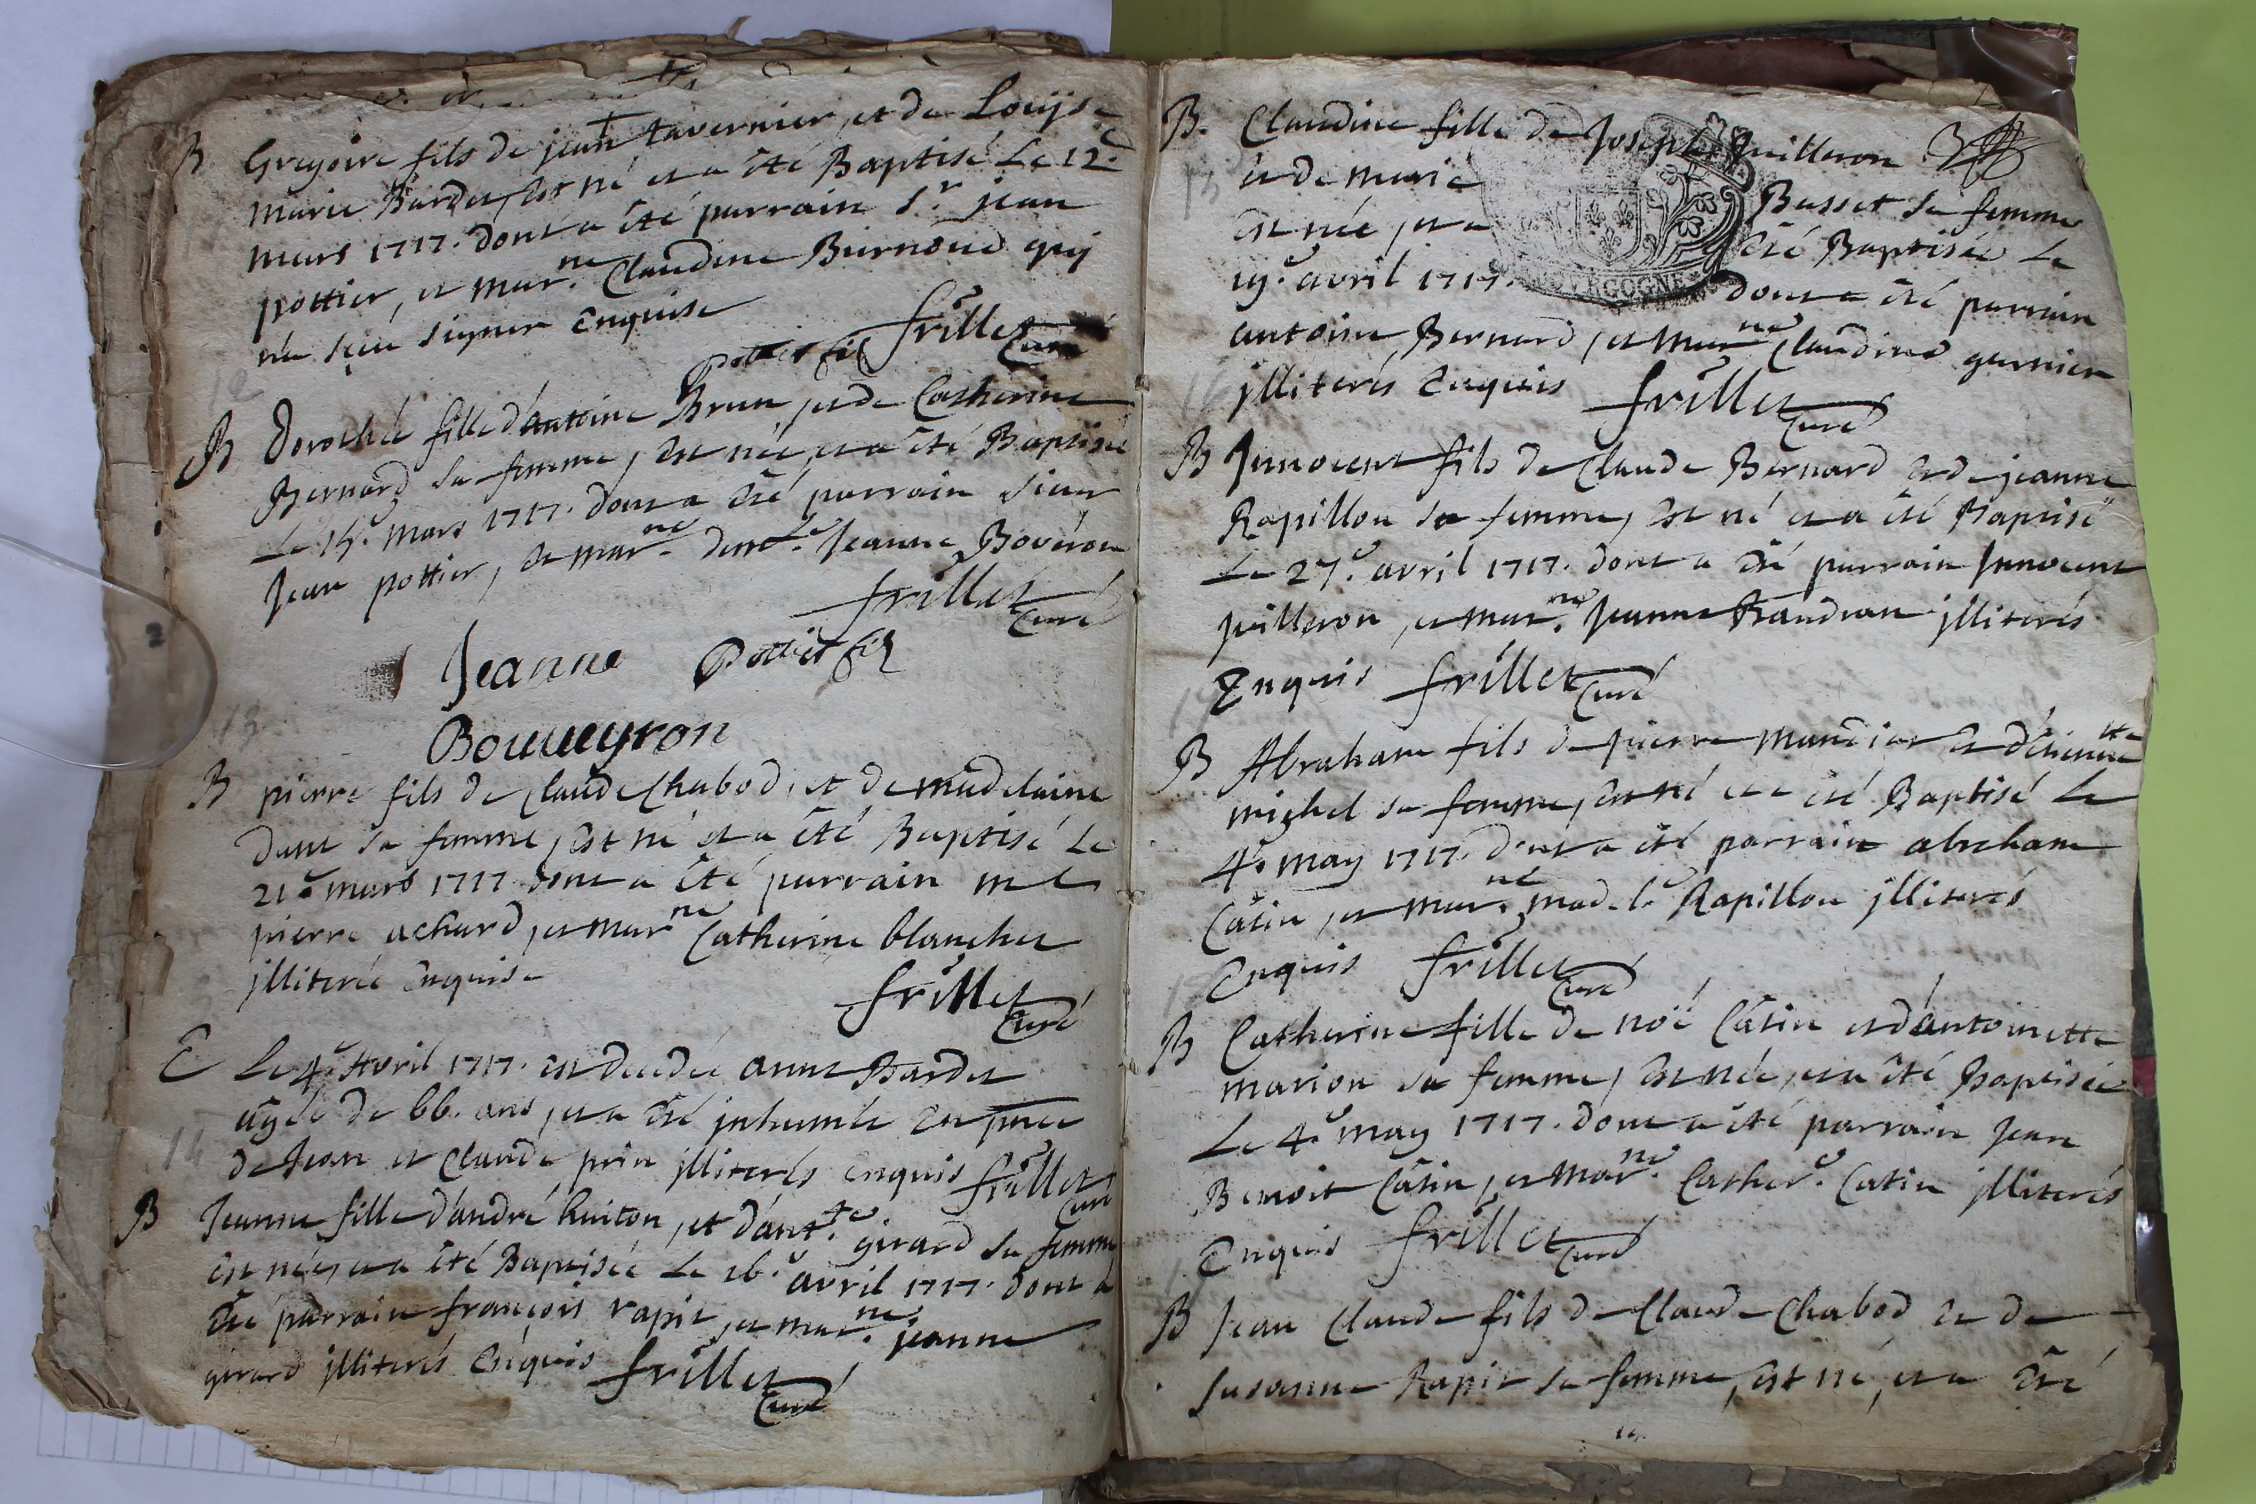 B Gregoire fils de jean tavernier, et de Louyse
Marie Bardet, est né et a êté Baptisé Le 12.e
mars 1717. dont a êté parrain S.r jean
pottier, et mar.ne Claudine Burnoud qui
n'a sçeu signer Enquise
Pottier fils frillet Curé
B Dorothée fille d'antoine Brun, et de Catherine
Bernard sa femme, est née, et a êté Baptisée
Le 15.e mars 1717. dont a êté parrain sieur
Jean pottier, et mar.ne dem.le Jeanne Bovéron
frillet Curé
Jeanne Pottier fils
Bouveyron
B pierre fils de Claude Chabod, et de madelaine
dant sa femme, est né et a êté Baptisé Le
21.e mars 1717 dont a êté parrain me
pierre achard, et mar.ne Catherine blanchet
jlliterée Enquise
frillet Curé
E Le 4.e Avril 1717. est decedée anne Bardet
âgée de 66. ans, et a êté jnhumée En pnce
de Jean et Claude prin jlliterés enquis frillet Curé
B Jeanne fille d'andré huiton, et d'ant.te girard sa femme
est née, et a êté Baptisée Le 16.e avril 1717. dont a
êté parrain françois rapit, et mar.ne jeanne
girard jlliterés Enquis frillet Curé
B. Claudine fille de Joseph Juilleron
et de marie Busset sa femme
est née, et a êté Baptisée Le
19.e avril 1717. dont a êté parrain
BOVRGOGNE
antoine Bernard, et mar.ne Claudine garnier
jlliterés Enquis frillet Curé
B Jnnocent fils de Claude Bernard et de jeanne
Rapillon sa femme, est né et a êté Baptisé
Le 27.e avril 1717. dont a êté parrain Jnnocent
juilleron, et mar.ne Jeanne jlliterés
Enquis frillet Curé
B Abraham fils de pierre et d'étiennette
mighel sa femme, est né et a êté Baptisé Le
4.e may 1717. dont a êté parrain abraham
Câtin, et mar.ne mad.le Rapillon jlliterés
Enquis frillet Curé
B Catherine fille de nöé Câtin et d'antoinette
marion sa femme, est née, et a êté Baptisée
Le 4.e may 1717. dont a êté parrain Jean
Benoit Câtin, et mar.ne Cather.e Catin jlliterés
Enquis frillet Curé
B Jean Claude fils de Claude Chabod et de
susanne Rapit sa femme, est né, et a êté